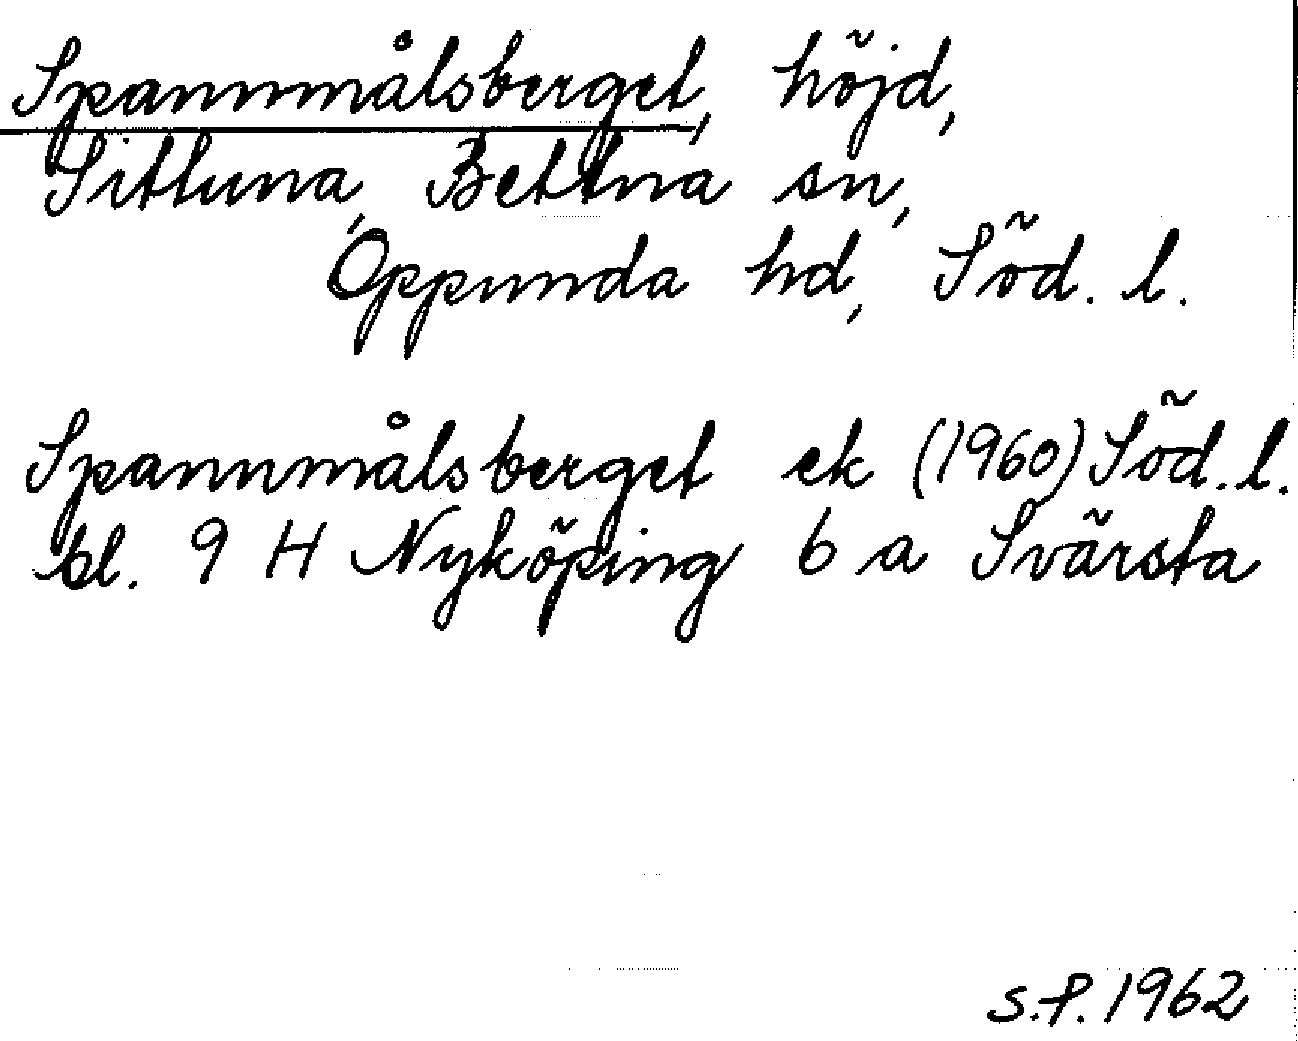 Spannmålsberget, höjd,
Sittuna, Bettna sn,
Oppunda hd, Söd. l.
Spannmålsberget ek (1960) Söd. l.
bl. 9 H Nyköping 6 a Svärsta
S.P. 1962